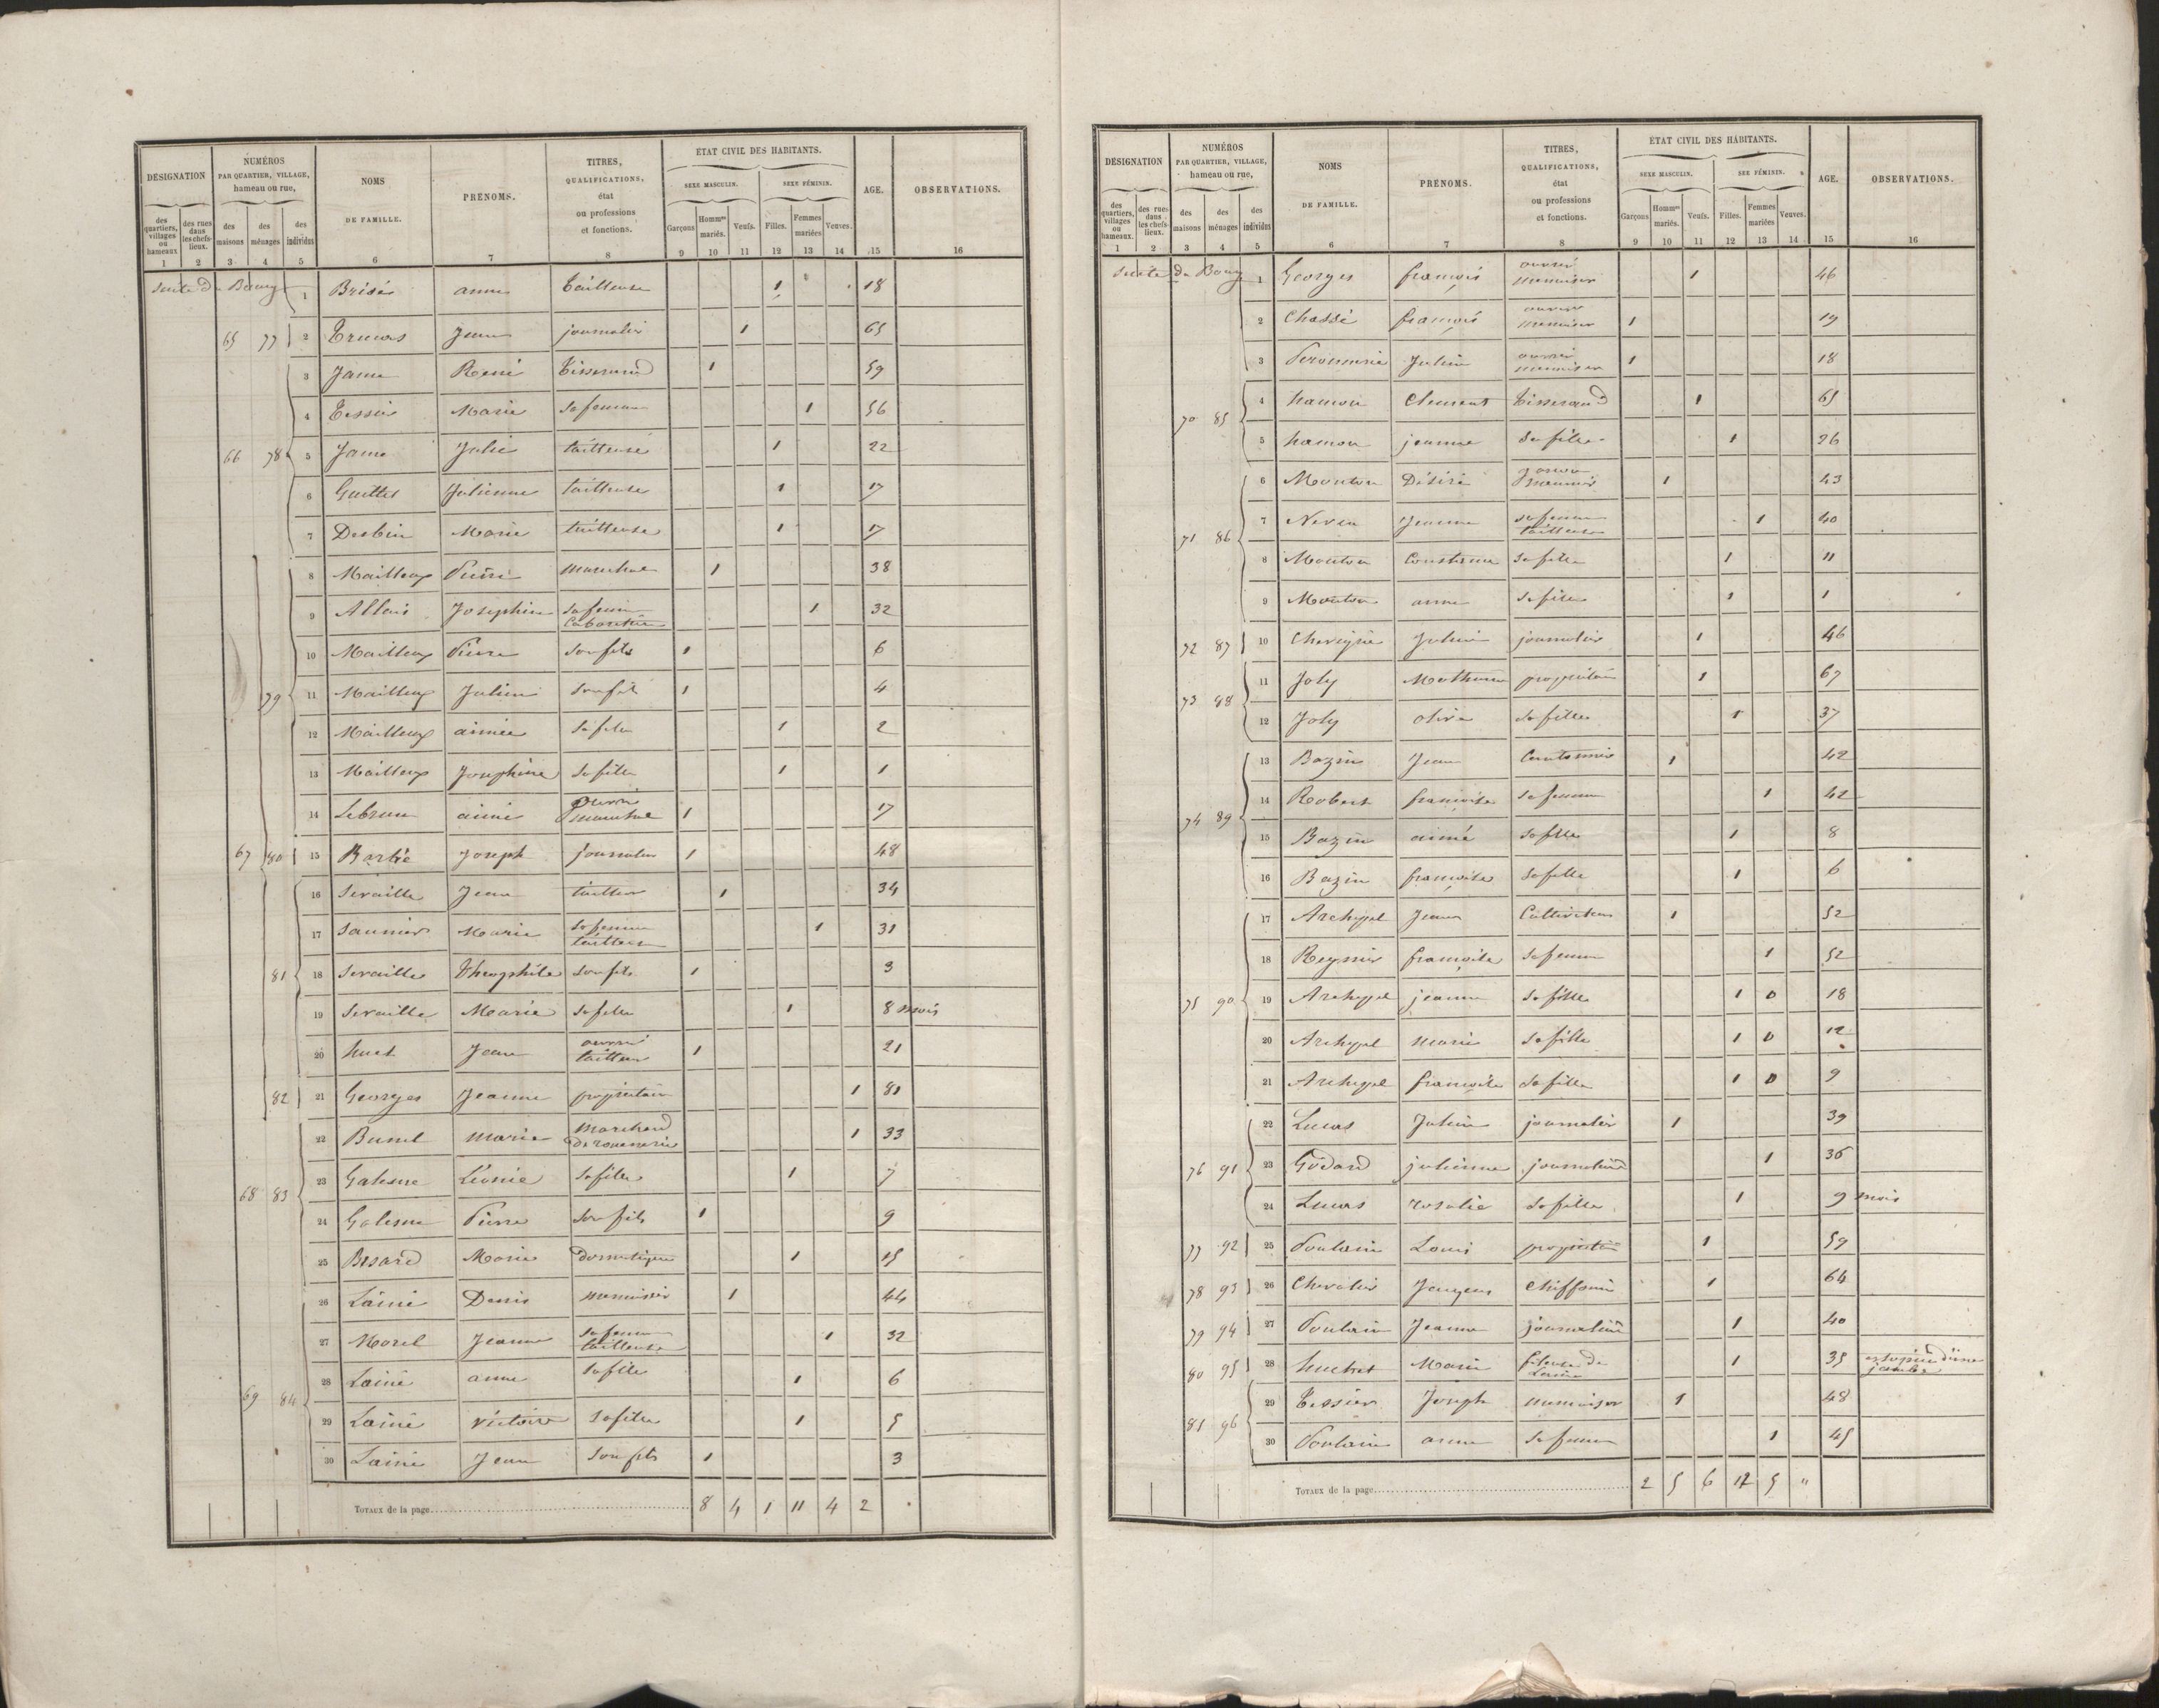 DÉSIGNATION
NUMÉROS
PAR QUARTIER, VILLAGE,
hameau ou rue,
NOMS
DE FAMILLE.
PRÉNOMS.
TITRES,
QUALIFICATIONS,
état
ou professions
et fonctions.
ÉTAT CIVIL DES HABITANTS.
SEXE MASCULIN.
SEXE FÉMININ.
AGE.
OBSERVATIONS.
des quartiers, villages ou hameaux
des rues dans les chefs-lieux.
des maisons
des ménages
des individus
Garçons
Hommes mariés.
Veufs.
Filles.
Femmes mariées
Veuves.
1 2 3 4 5 6 7 8 9 10 11 12 13 14 15 16
suite du Bourg
1 Bridé anne tailleuse 1 18
65 77 2 Jean journalier 1 65
3 Jame René tisserand 1 59
4 Tessier Marie sa femme 1 56
66 78 5 Jame Julie tailleuse 1 22
6 Guillet Julienne tailleuse 1 17
7 Derbin Marie tailleuse 1 17
8 Mailleux Pierre marechal 1 38
9 Allais Josephine sa femme 1 32
10 Mailleux Pierre son fils 1 6
79 11 Mailleux Julien son fils 1 4
12 Mailleux aimée sa fille 1 2
13 Mailleux Josephine sa fille 1 1
14 Lebrun aimé ouvrier marechal 1 17
67 80 15 Barbé Joseph journalier 1 48
16 Seraille Jean tailleur 1 34
17 Saunier Marie sa femme tailleuse 1 31
81 18 Seraille Theophile son fils 1 3
19 Seraille Marie sa fille 1 8 mois
20 huet Jean ouvrier tailleur 1 21
82 21 Georges Jeanne propriétaire 1 81
22 Bunel Marie Marchand de rouennerie 1 33
68 83 23 Galesne Léonie sa fille 1 7
24 Galesne Pierre son fils 1 9
25 Besard Marie domestique 1 15
26 Lainé Denis menuisier 1 44
27 Morel Jeanne sa femme tailleuse 1 32
69 84 28 Lainé anne sa fille 1 6
29 Lainé victoire sa fille 1 5
30 Lainé Jean son fils 1 3
TOTAUX de la page 8 4 1 11 4 2
DÉSIGNATION
NUMÉROS
PAR QUARTIER, VILLAGE,
hameau ou rue,
NOMS
DE FAMILLE.
PRÉNOMS.
TITRES,
QUALIFICATIONS,
état
ou professions
et fonctions.
ÉTAT CIVIL DES HABITANTS.
SEXE MASCULIN.
SEE FÉMININ.
AGE.
OBSERVATIONS.
des quartiers, villages ou hameaux.
des rues dans les chefs-lieux.
des maisons
des ménages
des individus
Garçons
Hommes mariés.
Veufs.
Filles.
Femmes mariées
Veuves.
1 2 3 4 5 6 7 8 9 10 11 12 13 14 15 16
suite du Bourg
1 Georges françois ouvrier menuisier 1 46
2 Chassé françois ouvrier menuisier 1 19
3 Julien ouvrier menuisier 1 18
70 85 4 hamon Clement tisserand 1 65
5 hamon jeanne sa fille 1 26
6 Mouton Désiré 1 43
71 86 7 Jeanne sa femme tailleuse 1 40
8 Mouton Constance sa fille 1 11
9 Mouton anne sa fille 1 1
72 87 10 Julien journalier 1 46
73 88 11 Joly Mathurin propriétaire 1 67
12 Joly olive sa fille 1 37
13 Bazin Jean Cantonnier 1 42
74 89 14 Robert françoise sa femme 1 42
15 Bazin aimé sa fille 1 8
16 Bazin françoise sa fille 1 6
17 Archeypel Jean Cultivateur 1 52
18 Regnier françoise sa femme 1 52
75 90 19 Archeypel jeanne sa fille 1 0 18
20 Archeypel marie sa fille 1 0 12
21 Archeypel françoise sa fille 1 0 9
22 Lucas Julien journalier 1 39
76 91 23 Godard julienne journalière 1 36
24 Lucas rosalie sa fille 1 9 mois
77 92 25 Poulain Louis propriétaire 1 59
78 93 26 Chevalier Jacques chiffonnier 1 64
79 94 27 Poulain Jeanne journalière 1 40
80 95 28 huchet Marie fileuse de Laine 1 35 estropiée d'une jambe
81 96 29 Tessier Joseph menuisier 1 48
30 Poulain anne sa femme 1 45
TOTAUX de la page 2 5 6 12 5 "